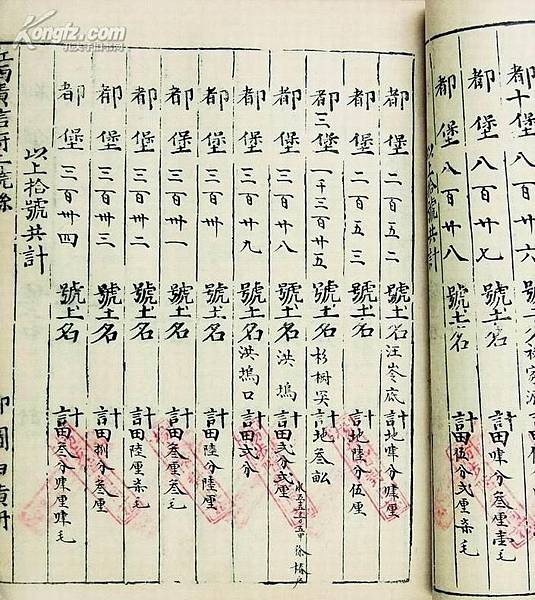 都十堡八百廿六號
都堡八百廿七號土名計田肆分叁厘壹毛
都堡八百廿八號土名計田伍分弍厘柒毛
以上拾號共計
都堡二百五二號土名汪岺底計地肆分肆厘
都堡二百五三號土名計地陸分伍厘
都三堡一千三百廿五號土名杉樹吴計地叁畝
都堡三百廿八號土名洪塢計田弍分弍厘
五甲徐椿戶
都堡三百廿九號土名洪塢口計田弍分
都堡三百卅號土名計田陸分陸厘
都堡三百卅一號土名計田叁厘叁毛
都堡三百卅二號土名計田陸厘柒毛
都堡三百卅三號土名計田捌分叁厘
都堡三百卅四號土名計田叁分肆厘肆毛
以上拾號共計
江西廣信府
Kongfz.com
孔夫子旧书网